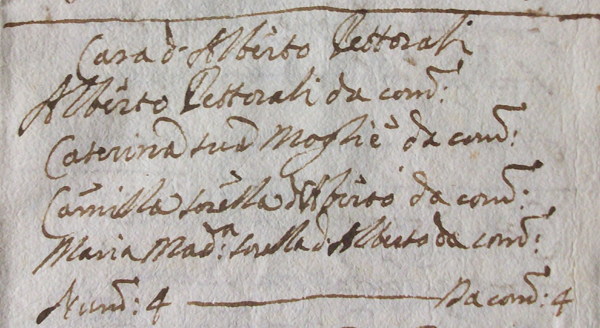 Casa d' Alberto Pettorali
Alberto Pettorali da com:
Caterina sua Moglie da com:
Camilla sorella d'Alberto da com:
Maria Mad:a sorella d'Alberto da com:
Num: 4 Da com: 4